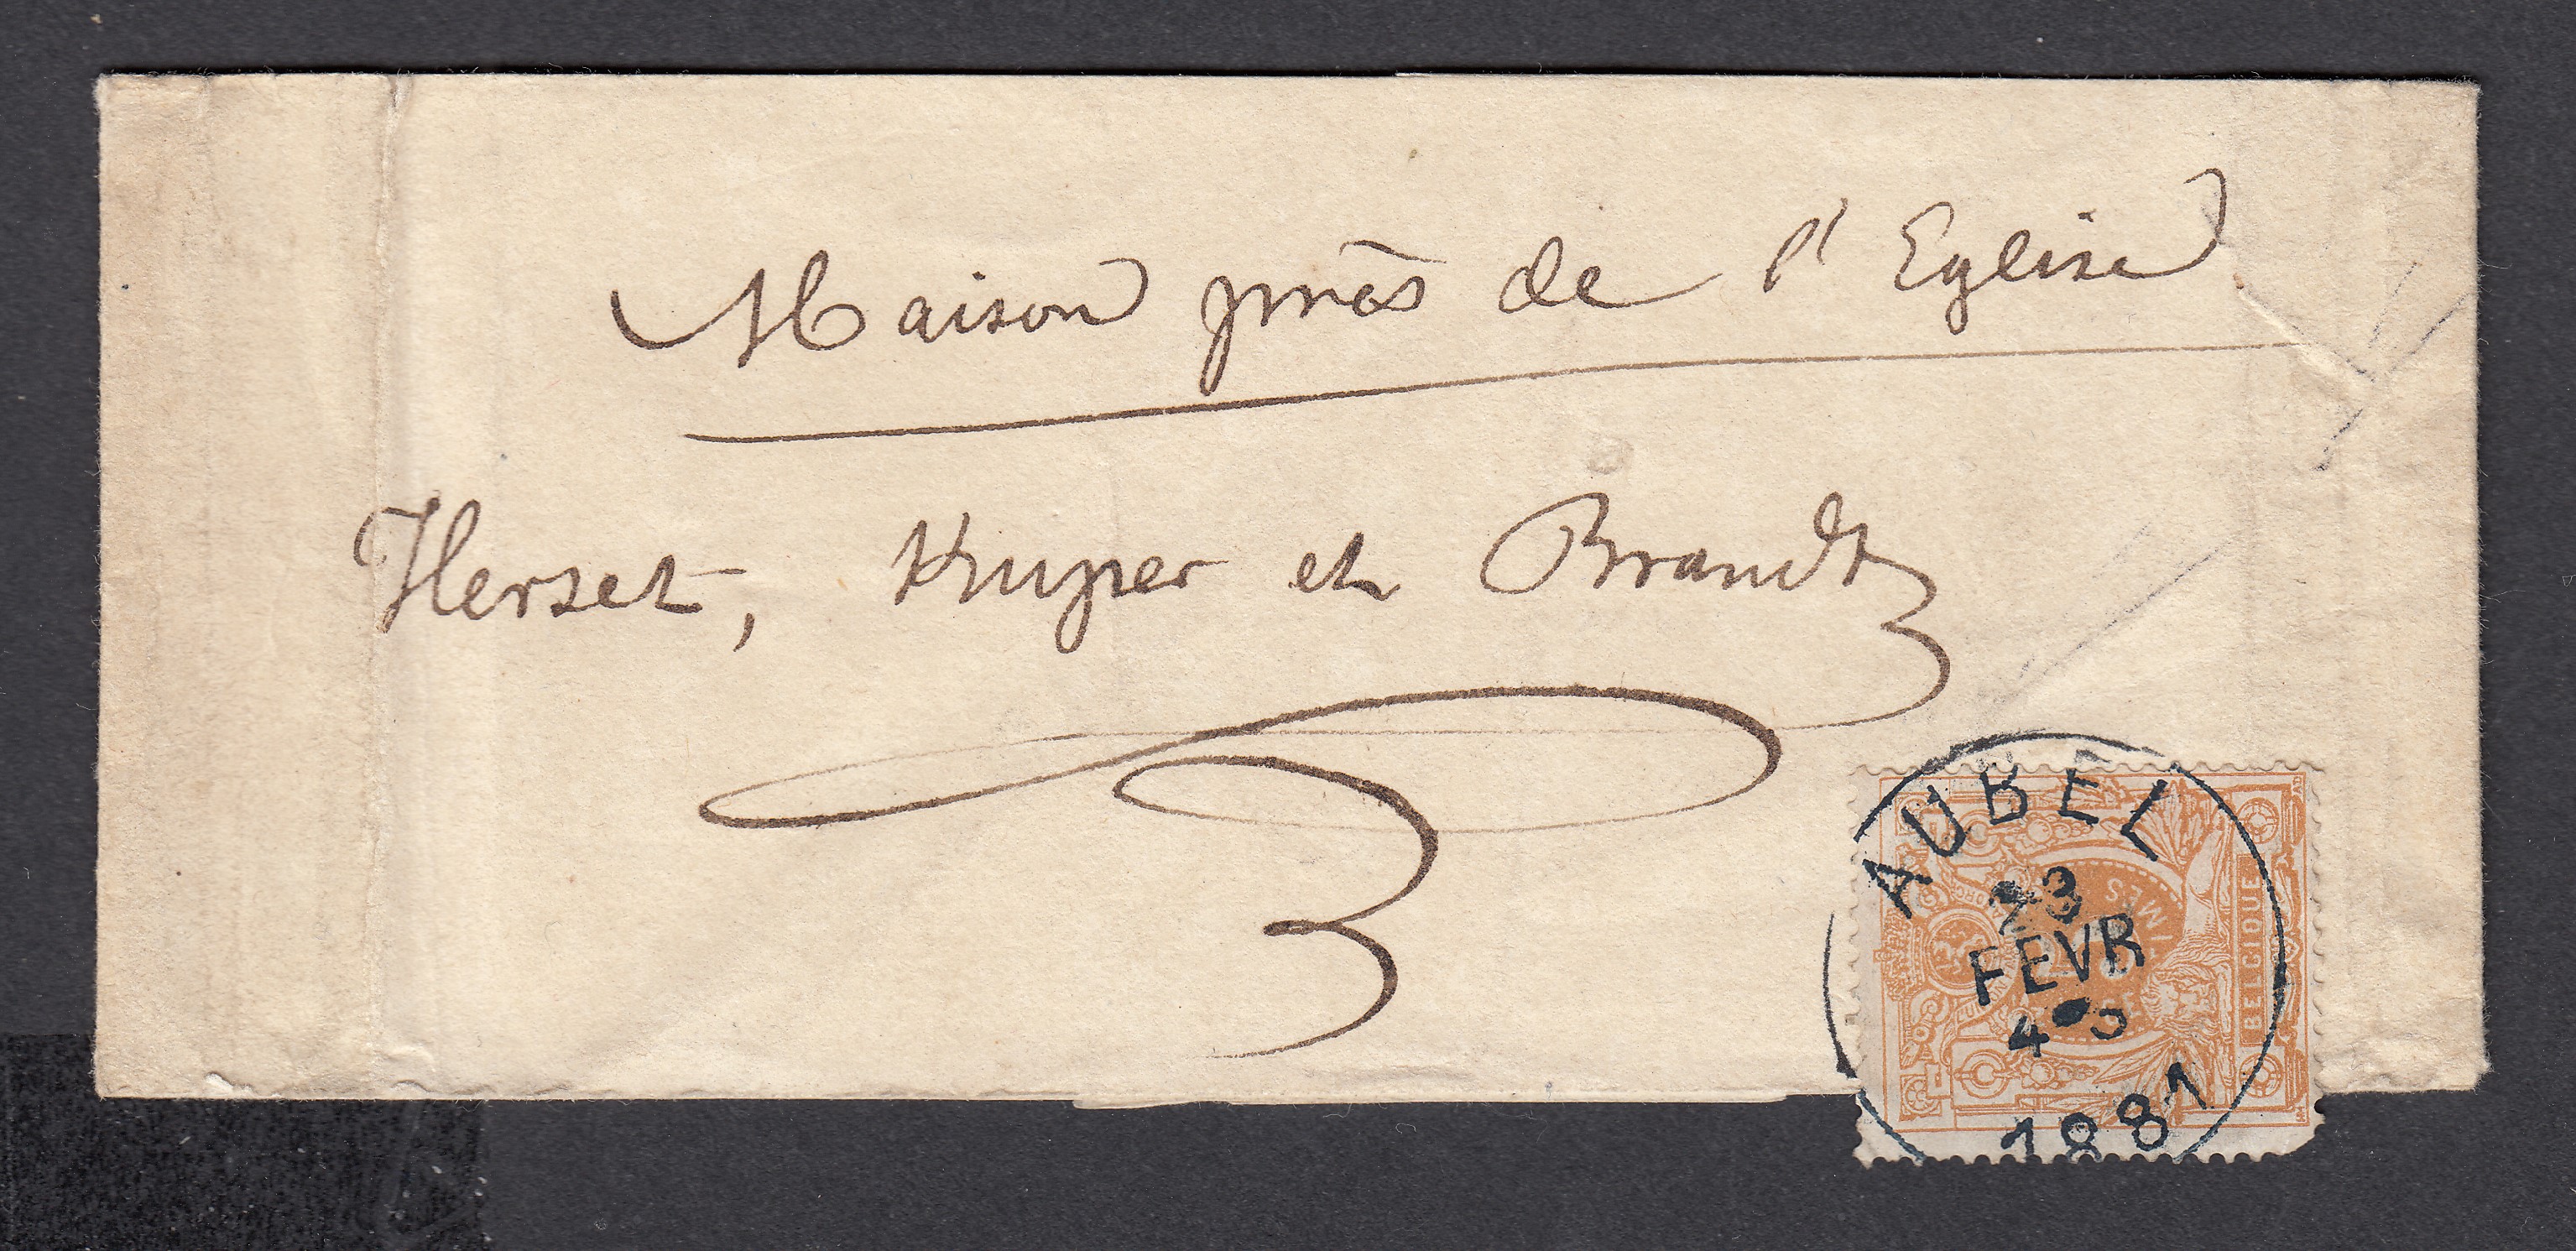 Maison près de l'Eglise
Herset, Kuyper et Brandt
AUBEL
23
FEVR
1881
BELGIQUE